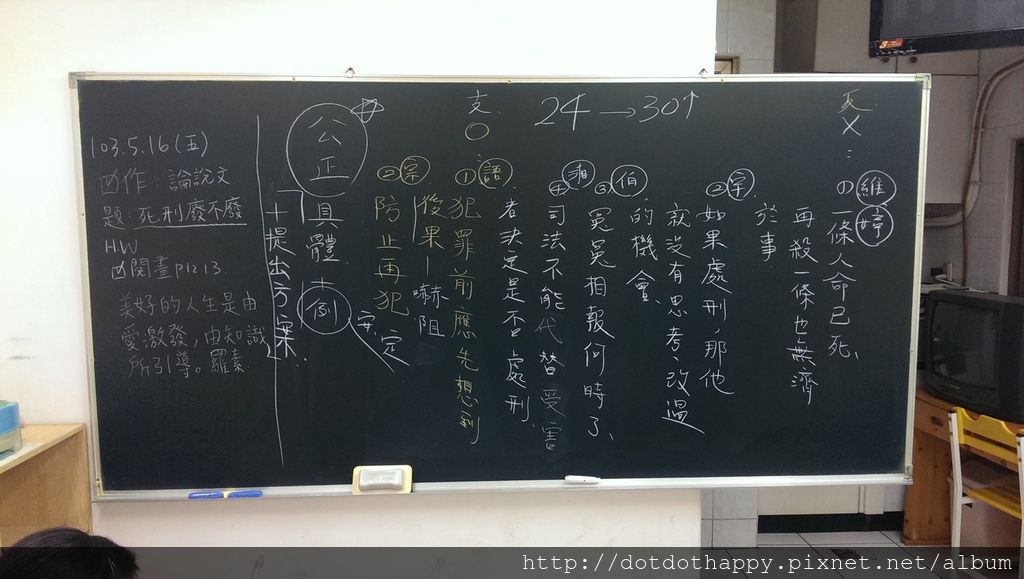 103.5.16(五)
凶作:論說文
題:死刑廢不廢
H.W
凶閱畫p12.13
美好的人生是由
愛激發,由知識
所引導。羅素
24→30↑
反
X:
維
婷
の一條人命已死、
再殺一條也無濟
於事
②宗
如果處刑,那他
就沒有思考、改過
的機會
③伯
冤冤相報何時了、
④湘
司法不能代替受害
者決定是否處刑、
支
○:
①語
犯罪前應先想到
後果-嚇阻
②宗
防止再犯
公正
具體+例
安定
+提出方案
http://dotdothappy.pixnet.net/album